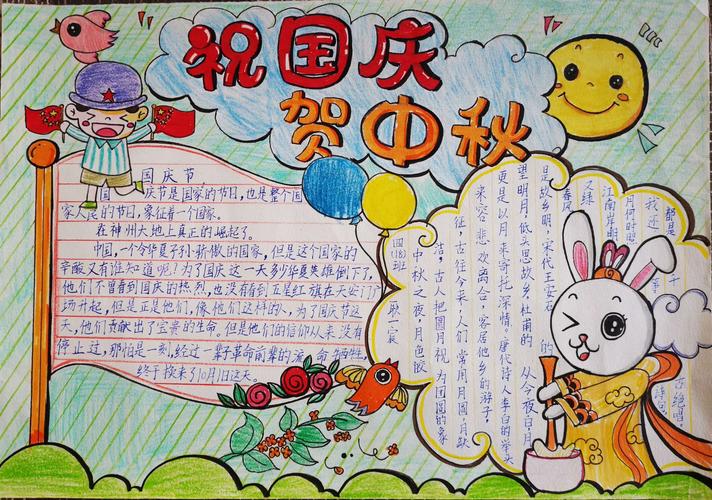 祝国庆
贺中秋
国庆节,
国 庆节是国家的节日,也是整个国
家人民的节日,象征着一个国家。
在神州大地上真正的崛起了。
中国,一个令华夏子孙骄傲的国家,但是这个国家的
辛酸又有谁知道呢?为了国庆这一天多少华夏英雄倒下了,
他们不曾看到国庆的热烈,也没有看到五星红旗在天安门广
场升起,但是正是他们,像他们这样的人,为了国庆节这
天,他们贡献出了宝贵的生命,但是他们的信仰从来没有
停止过,那怕是一刻,经过一辈子革命前辈的流 牺牲,
终于换来了10月1日这天。
四(18)班
中秋之夜,月色皎
洁,古人把圆月视为团圆的象
征,古往今来,人们常用月圆,月缺
来容悲欢离合,客居他乡的游子,
更是以月来寄托深情。唐代诗人李白的举头
望明月,低头思故乡,杜甫的 从今夜白,月
是故乡明,宋代王安石的
春风
又绿
江南岸,明
月何时照
我还,
都是千
绝唱
诗句